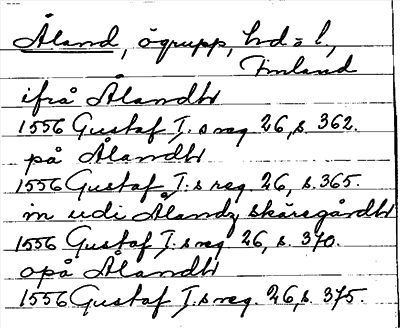 Åland, ögrupp, hd = l,
Finland
ifrå Ålandh
1556 Gustaf I:s reg. 26, s. 362.
på Ålandh
1556 Gustaf I:s reg. 26, s. 365.
in udi Ålandz skäregårdh
1556 Gustaf I:s reg 26, s. 370.
opå Ålandh
1556 Gustaf I:s reg. 26, s. 375.